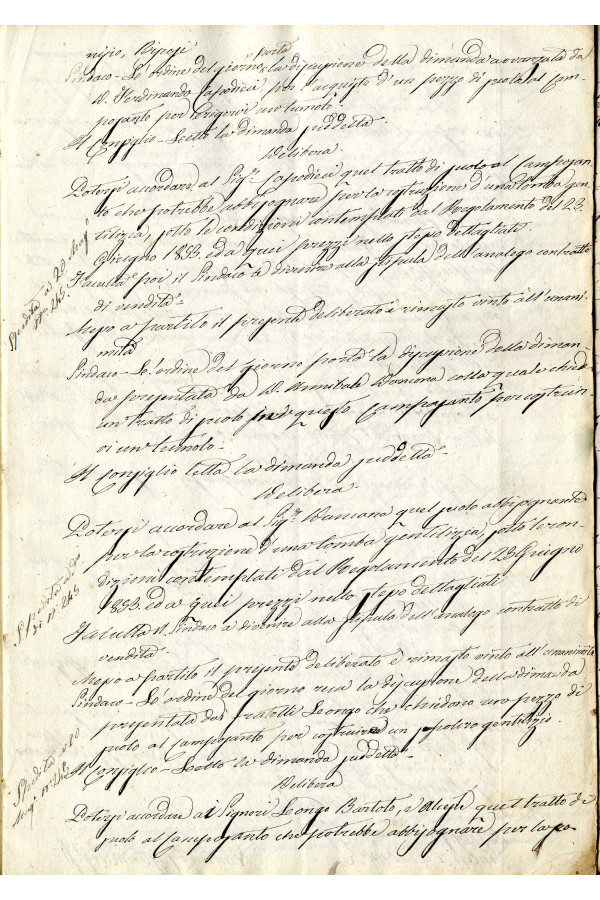 nisio, Biposi
porta
Sindaco - Le ordine del giorno la discussione della dimanda avvanzata da
D. Ferdinando Capodieci per acquisto d'un pezzo di suolo al Cam-
posanto per erigervi un tumolo -
Il Consiglio - Letto la dimanda suddetta
Delibera
Potersi accordare al Sig.r Capodieci quel tratto di suolo al Camposan-
to che potrebbe abbisognare per la costruzione d'una tomba gen-
tilizia, sotto le condizioni contemplati dal Regolamento del 23
Giugno 1853 ed a quei prezzi nello stesso dettagliati.
Facultà poi il Sindaco a divenire alla stipula dell'analogo contratto
di vendita -
Messo a partito il presente deliberato è rimasto vinto all'unani-
mità
Spedita a 20 Mag
n.° 245
Sindaco - Le ordine del giorno porta la discussione della diman-
da presentata da D. Annibale Dancona colla quale chiede
un tratto di suolo in questo Camposanto per costruir-
vi un tumolo -
Il Consiglio letta la dimanda suddetta
Delibera
Potersi accordare al Sig.r Dancona quel suolo abbisognante
per la costruzione d'una tomba gentilizia, sotto le con-
dizioni contemplati dal Regolamento del 23 Giugno
1853 ed a quei prezzi nello stesso dettagliati
Facultà il Sindaco a divenire alla stipula dell'analogo contratto di
vendita -
Messo a partito il presente deliberato è rimasto vinto all'unanimità
Spedita a
di n.° 245
Sindaco - Le ordine del giorno reca la discussione della dimanda
presentata da fratelli Leongo che chiedono uno pezzo di
suolo al Camposanto per costruire un sepolcro gentilizio -
Il Consiglio - Letto la dimanda suddetta -
Delibera
Spedita a 20
Mag. n.° 245
Potersi accordare ai Signori Leongo Bartolo, e quel tratto di
suolo al Camposanto che potrebbe abbisognare per la co-